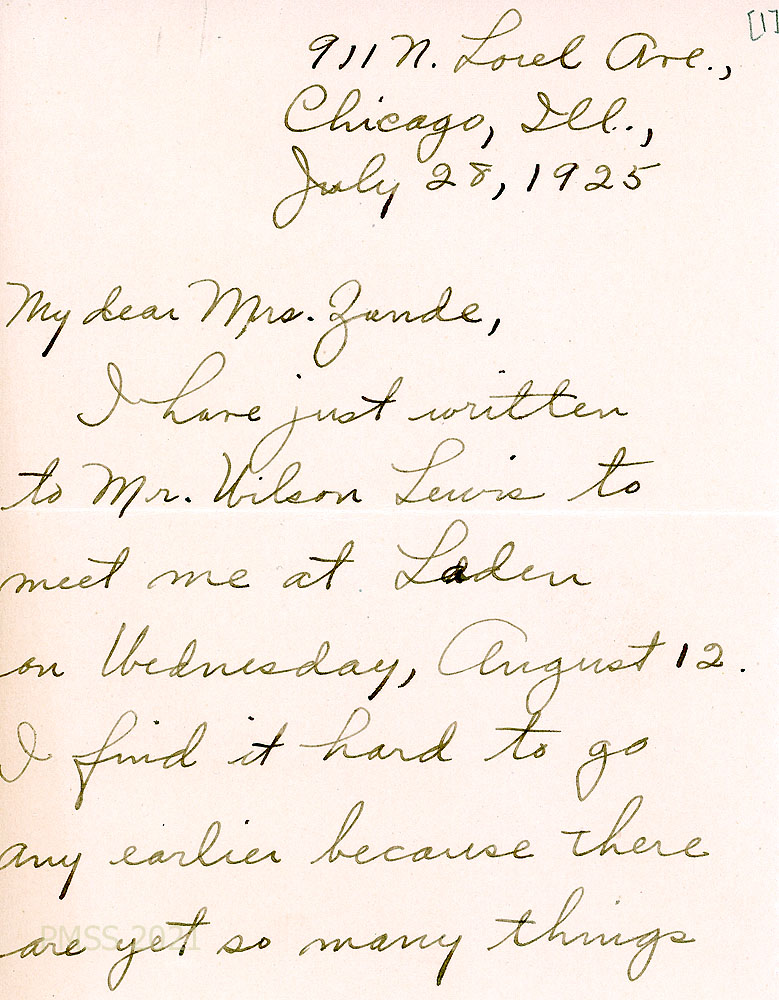 [1]
911 N. Lorel Ave.,
Chicago, Ill.,
July 28, 1925
My dear Mrs. Zande,
I have just written
to Mr. Wilson Lewis to
meet me at Laden
on Wednesday, August 12.
I find it hard to go
any earlier because there
are yet so many things
PMSS 2021